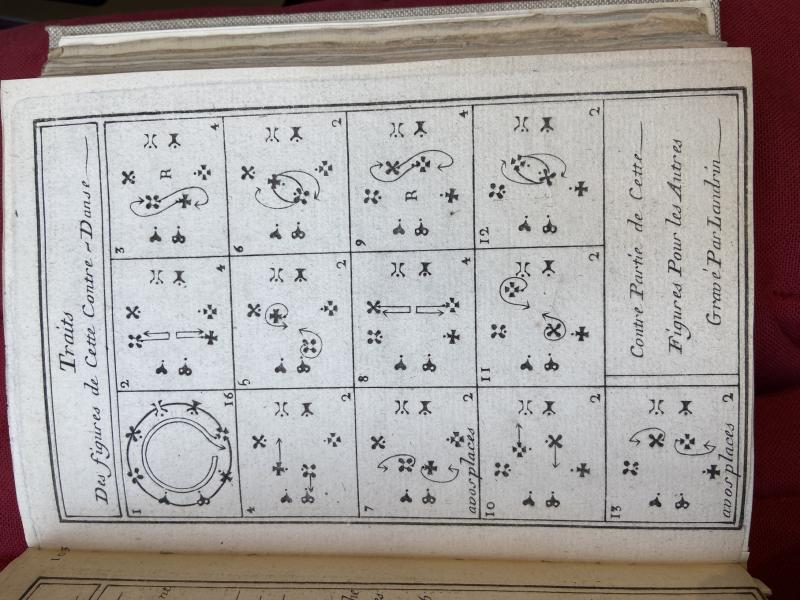 Traits
Des figures de Cette Contre-Danse
1
16
2
4
3
R
4
4
2
5
2
6
2
7
2
avosplaces
8
4
9
R
4
10
2
11
2
12
2
13
2
avosplaces
Contre Partie de Cette
Figures Pour les Autres
Gravé Par Landrin